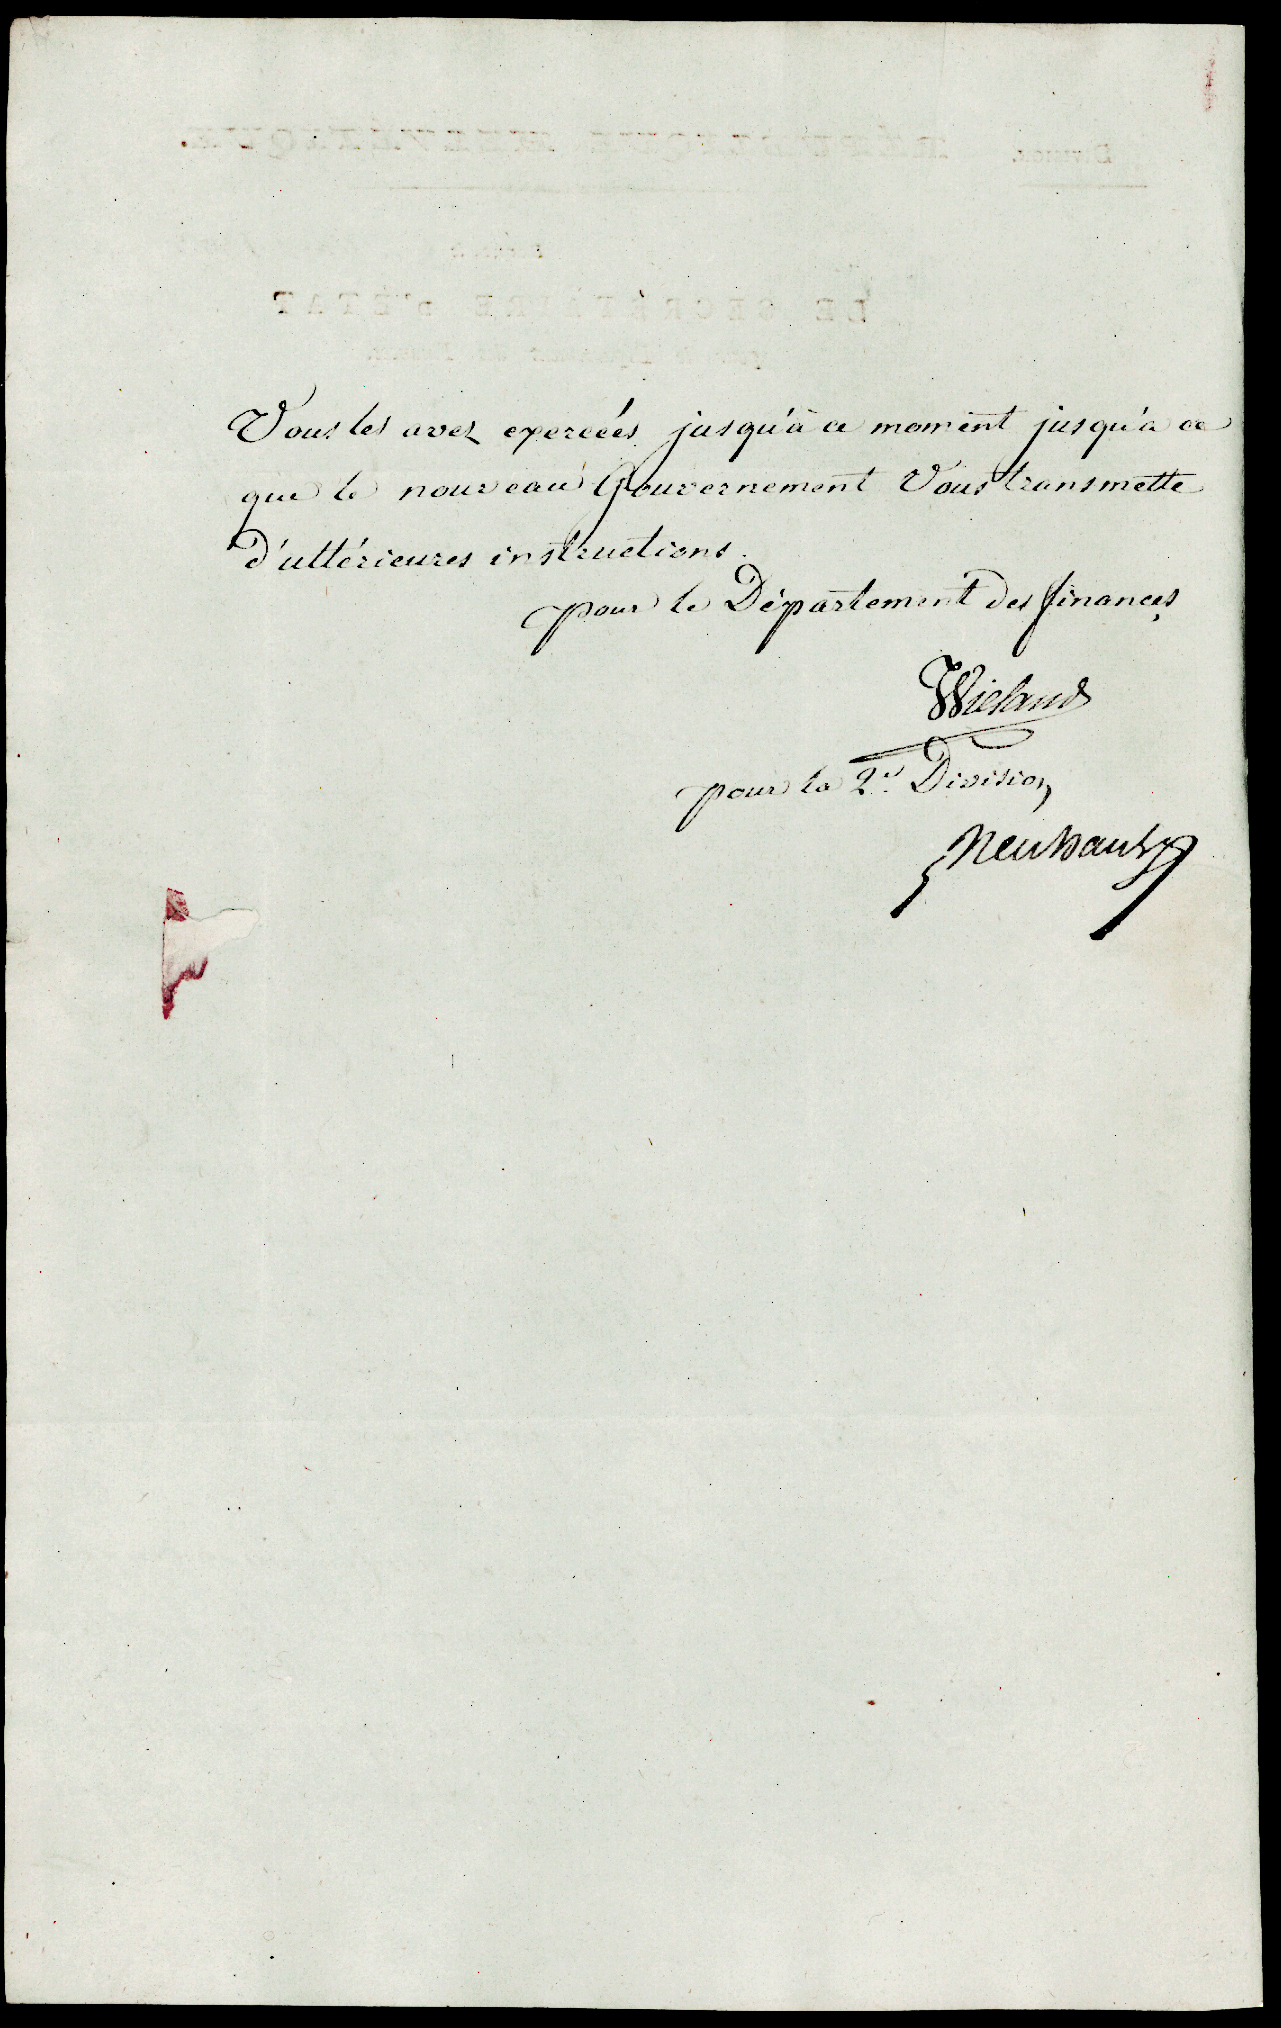 Vous les avez exercées jusqu'à ce moment jusqu'à ce
que le nouveau Gouvernement Vous transmette
d'ultérieures instructions.
pour le Département des finances
Wieland
pour la 2de Division
Neuhaus